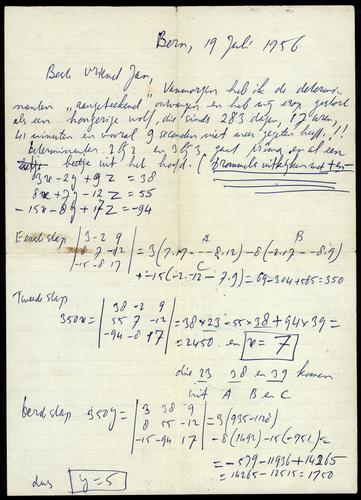 Bern, 19 Juli 1956
Beste Vriend Jan,
Vanmorgen heb ik de determi-
nanten "aangetekend" ontvangen en heb mij erop gestort
als een hongerige wolf, die sinds 283 dagen, 17 uren,
41 minuten en vooral 9 seconden niet meer gegeten heeft!!!
determinanten 2 bij 2 en 3 bij 3 gaat prima en al een
beetje uit het hoofd. (
3x - 2y + 9z = 38
8x + 7y - 12z = 55
-15x - 8y + 17z = -94
Eerste stap | 3 -2 9
8 7 -12
-15 -8 17 | = 3(7.17 - -8.12) - 8(-2.17 - -8.9)
A B
+ -15(-2.-12 - 7.9) = 69-304+585=350
C
Tweede stap
350x = | 38 -2 9
55 7 -12
-94 -8 17 | = 38×23 - 55×38 + 94×39 =
= 2450 en x = 7
die 23 38 en 39 komen
uit A B en C
derde stap 350y = | 3 38 9
8 55 -12
-15 -94 17 | = 3(935-1128)
-8(1492) -15(-951) =
= -579 - 11936 + 14265
= 14265 - 12515 = 1750
dus y = 5